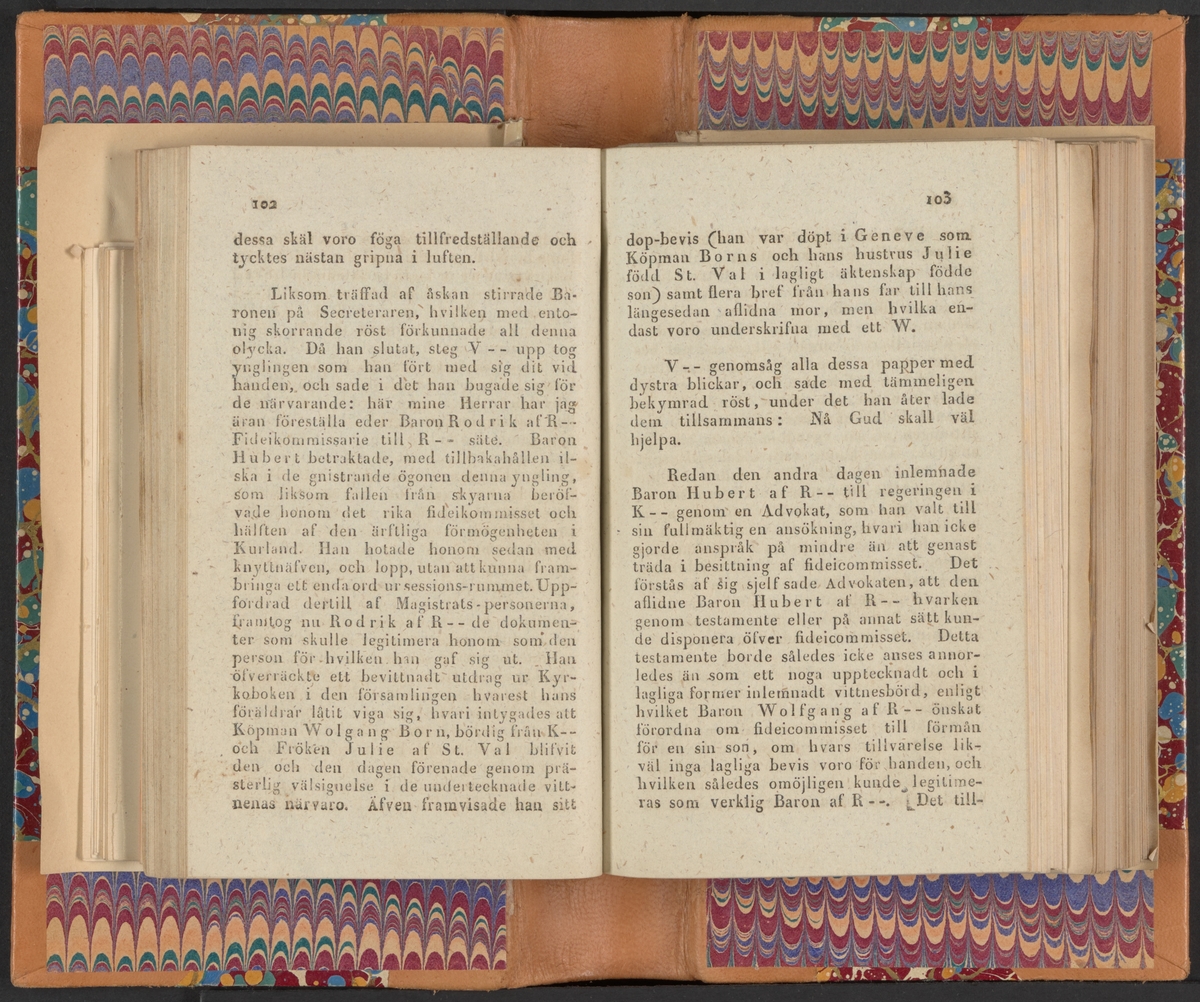 102
dessa skäl voro föga tillfredställande och
tycktes nästan gripna i luften.
Liksom träffad af åskan stirrade Ba-
ronen på Secreteraren, hvilken med ento-
nig skorrande röst förkunnade all denna
olycka. Då han slutat, steg V -- upp tog
ynglingen som han fört med sig dit vid
handen, och sade i det han bugade sig för
de närvarande: här mine Herrar har jag
äran föreställa eder Baron Rodrik af R--
Fideikommissarie till R -- säte. Baron
Hubert betraktade, med tillbakahållen il-
ska i de gnistrande ögonen denna yngling,
som liksom fallen från skyarna beröf-
vade honom det rika fideikommisset och
hälften af den ärftliga förmögenheten i
Kurland. Han hotade honom sedan med
knyttnäfven, och lopp, utan att kunna fram-
bringa ett enda ord ur sessions-rummet. Upp-
fordrad dertill af Magistrats-personerna,
framtog nu Rodrik af R -- de dokumen-
ter som skulle legitimera honom som den
person för hvilken han gaf sig ut. Han
öfverräckte ett bevittnadt utdrag ur Kyr-
koboken i den församlingen hvarest hans
föräldrar låtit viga sig, hvari intygades att
Köpman Wolgang Born, bördig från K--
och Fröken Julie af St. Val blifvit
den och den dagen förenade genom prä-
sterlig välsignelse i de undertecknade vitt-
nenas närvaro. Äfven framvisade han sitt
103
dop-bevis (han var döpt i Geneve som
Köpman Borns och hans hustrus Julie
född St. Val i lagligt äktenskap födde
son) samt flera bref från hans far till hans
längesedan aflidna mor, men hvilka en-
dast voro underskrifna med ett W.
V -- genomsåg alla dessa papper med
dystra blickar, och sade med tämmeligen
bekymrad röst, under det han åter lade
dem tillsammans: Nå Gud skall väl
hjelpa.
Redan den andra dagen inlemnade
Baron Hubert af R -- till regeringen i
K -- genom en Advokat, som han valt till
sin fullmäktig en ansökning, hvari han icke
gjorde anspråk på mindre än att genast
träda i besittning af fideicommisset. Det
förstås af sig sjelf sade Advokaten, att den
aflidne Baron Hubert af R -- hvarken
genom testamente eller på annat sätt kun-
de disponera öfver fideicommisset. Detta
testamente borde således icke anses annor-
ledes än som ett noga upptecknadt och i
lagliga former inlemnadt vittnesbörd, enligt
hvilket Baron Wolfgang af R -- önskat
förordna om fideicommisset till förmån
för en sin son, om hvars tillvarelse lik-
väl inga lagliga bevis voro för handen, och
hvilken således omöjligen kunde legitime-
ras som verklig Baron af R --. Det till-